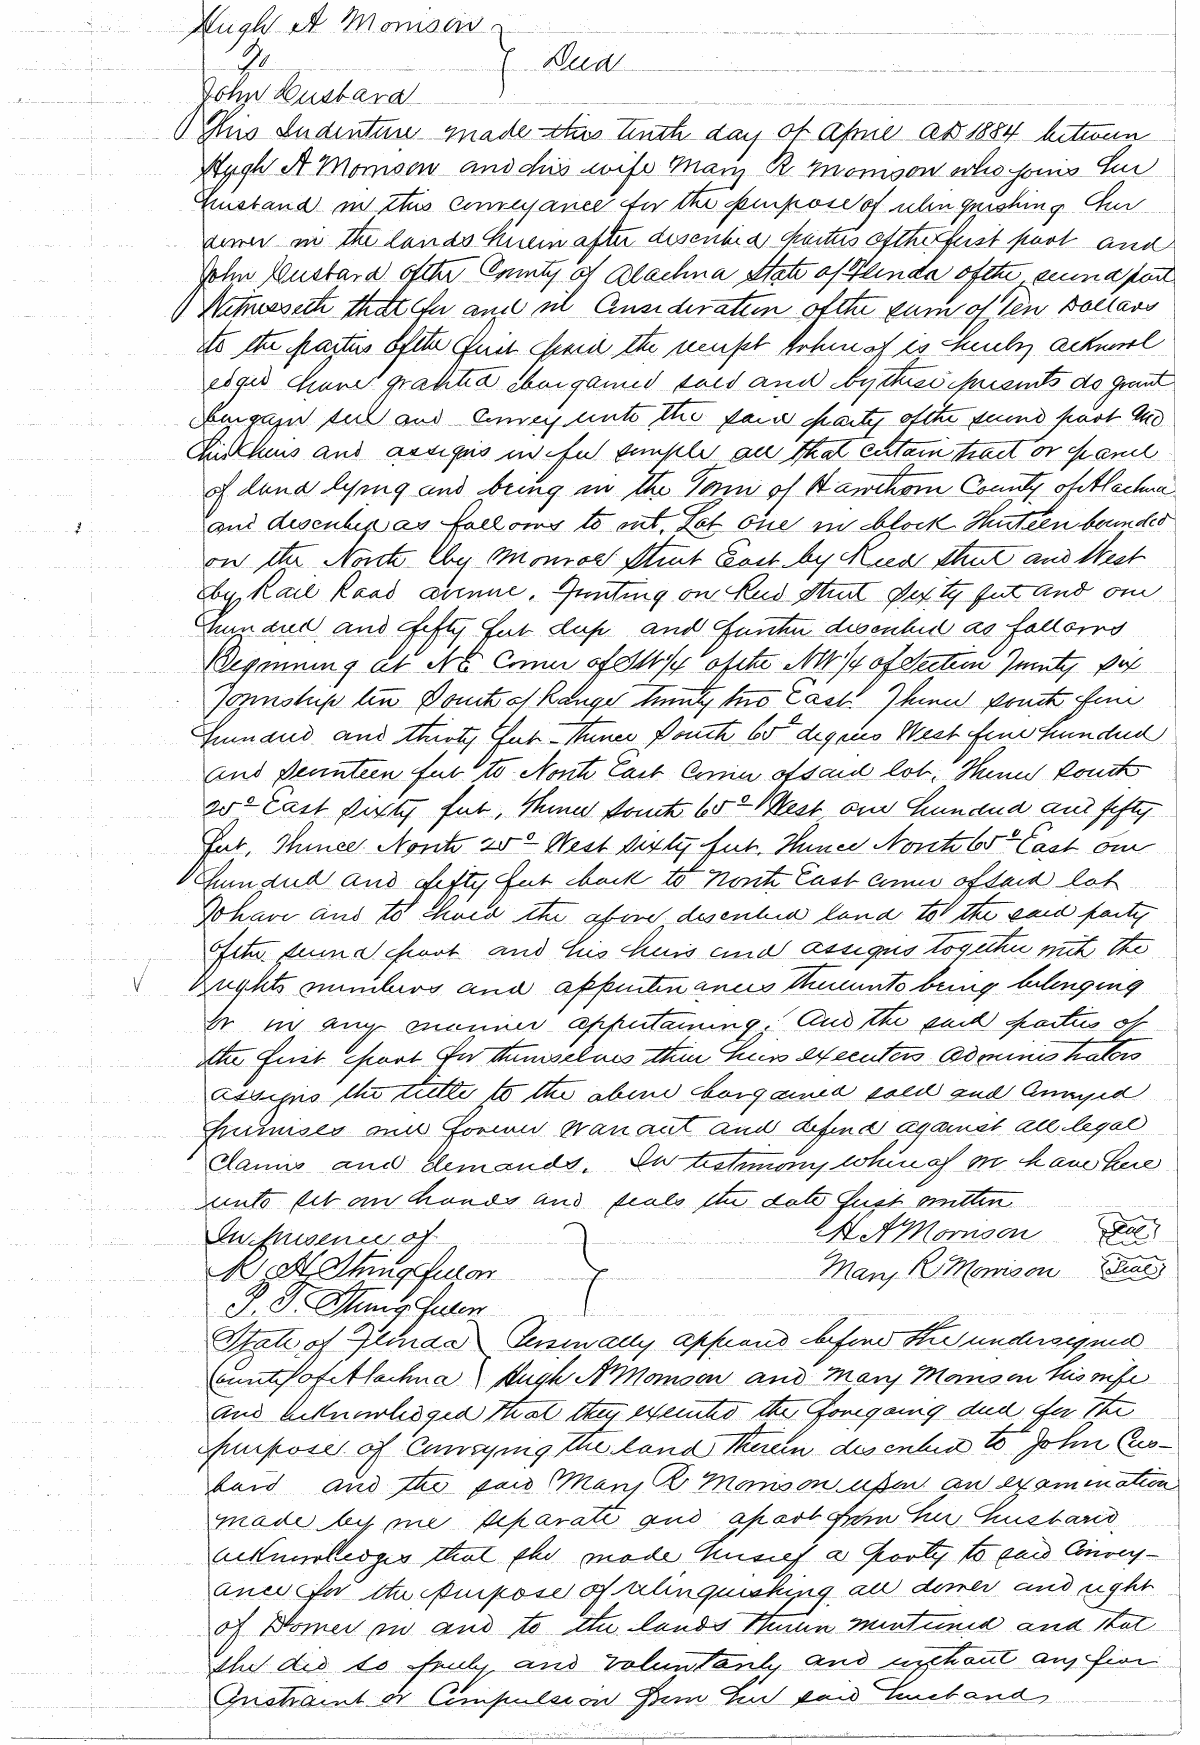 Hugh A Morrison
To } Deed
John Cusbard
This Indenture made this tenth day of April AD 1884 between
Hugh A Morrison and his wife Mary R Morrison who joins her
husband in this conveyance for the purpose of relinquishing her
dower in the lands herein after described parties of the first part and
John Cusbard of the County of Alachua State of Florida of the second part
Witnesseth that for and in Consideration of the sum of Ten Dollars
to the parties of the first paid the receipt whereof is hereby acknowl
edged have granted bargained sold and by these presents do grant
bargain sell and convey unto the said party of the second part and
his heirs and assigns in fee simple all that certain tract or parcel
of land lying and being in the Town of Hawthorn County of Alachua
and described as follows to wit. Lot One in block Thirteen bounded
on the North by Monroe Street East by Reed Street and West
by Rail Road avenue. Fronting on Reed Street Sixty feet and one
hundred and fifty feet deep and further described as follows
Beginning at NE Corner of SW 1/4 of the NW 1/4 of Section Twenty six
Township ten South of Range twenty two East. Thence south five
hundred and thirty feet - Thence South 65° degrees West five hundred
and Seventeen feet to North East Corner of said lot. Thence South
25° East Sixty feet, Thence South 65° West one hundred and fifty
feet, Thence North 25° West Sixty feet. Thence North 65° East one
hundred and fifty feet back to North East corner of said lot
To have and to hold the above described land to the said party
of the second part and his heirs and assigns together with the
rights members and appurtenances thereunto being belonging
or in any manner appertaining. And the said parties of
the first part for themselves their heirs executors administrators
assigns the title to the above bargained sold and conveyed
premises will forever warrant and defend against all legal
Claims and demands. In testimony whereof we have here
unto set our hands and seals the date first written
In presence of } H A Morrison Seal
R H Stringfellow Mary R Morrison Seal
P. T. Stringfellow
State of Florida } Personally appeared before the undersigned
County of Alachua } Hugh A Morrison and Mary Morrison his wife
and acknowledged that they executed the foregoing deed for the
purpose of Conveying the land therein described to John Cus-
bard and the said Mary R Morrison upon an examination
made by me separate and apart from her husband
acknowledges that she made herself a party to said Convey-
ance for the purpose of relinquishing all dower and right
of Dower in and to the lands therein mentioned and that
she did so freely and voluntarily and without any fear
Constraint or Compulsion from her said husband,